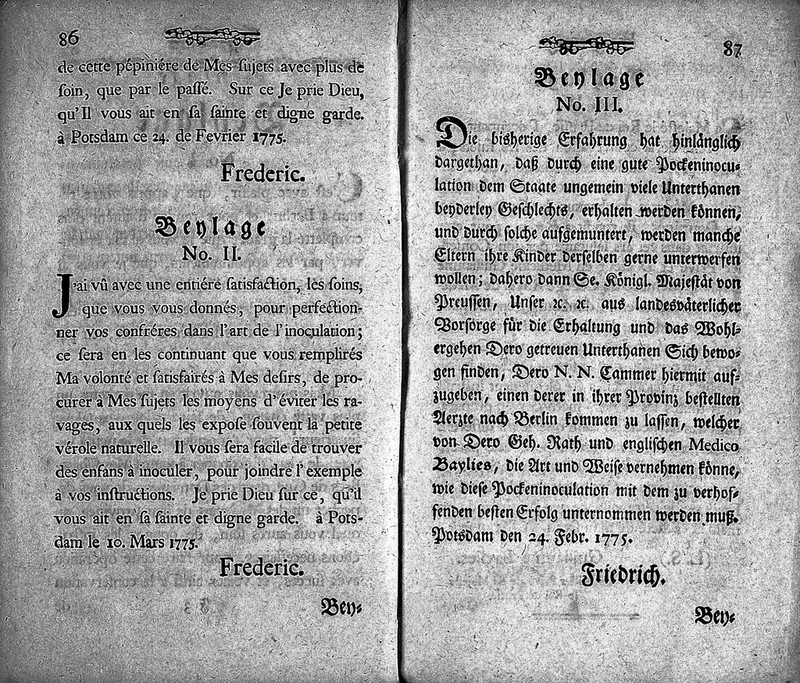 86
de cette pépiniére de Mes sujets avec plus de
soin, que par le passé. Sur ce Je prie Dieu,
qu'Il vous ait en sa sainte et digne garde.
à Potsdam ce 24. de Fevrier 1775.
Frederic.
Beylage
No. II.
J'ai vû avec une entiére satisfaction, les soins,
que vous vous donnés, pour perfection-
ner vos confréres dans l'art de l'inoculation;
ce sera en les continuant que vous remplirés
Ma volonté et satisfairés à Mes desirs, de pro-
curer à Mes sujets les moyens d'éviter les ra-
vages, aux quels les expose souvent la petite
vérole naturelle. Il vous sera facile de trouver
des enfans à inoculer, pour joindre l'exemple
à vos instructions. Je prie Dieu sur ce, qu'il
vous ait en sa sainte et digne garde. à Pots-
dam le 10. Mars 1775.
Frederic.
Bey-
87
Beylage
No. III.
Die bisherige Erfahrung hat hinlänglich
dargethan, daß durch eine gute Pockeninocu-
lation dem Staate ungemein viele Unterthanen
beyderley Geschlechts, erhalten werden können,
und durch solche aufgemuntert, werden manche
Eltern ihre Kinder derselben gerne unterwerfen
wollen; dahero dann Se. Königl. Majestät von
Preussen, Unser ꝛc. ꝛc. aus landesväterlicher
Vorsorge für die Erhaltung und das Wohl-
ergehen Dero getreuen Unterthanen Sich bewo-
gen finden, Dero N. N. Cammer hiermit auf-
zugeben, einen derer in ihrer Provinz bestellten
Aerzte nach Berlin kommen zu lassen, welcher
von Dero Geh. Rath und englischen Medico
Baylies, die Art und Weise vernehmen könne,
wie diese Pockeninoculation mit dem zu verhof-
fenden besten Erfolg unternommen werden muß.
Potsdam den 24. Febr. 1775.
Friedrich.
Bey-